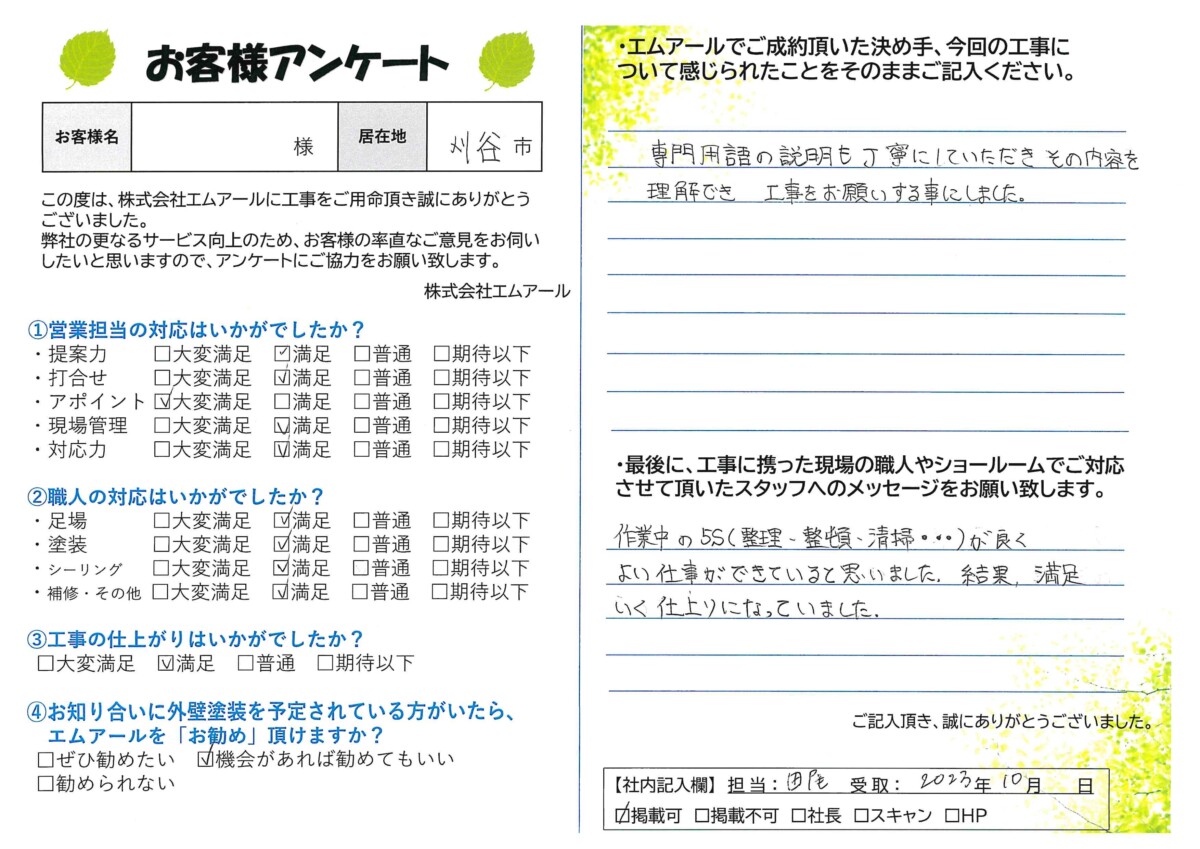 お客様アンケート
お客様名 様 居在地 刈谷市
この度は、株式会社エムアールに工事をご用命頂き誠にありがとう
ございました。
弊社の更なるサービス向上のため、お客様の率直なご意見をお伺い
したいと思いますので、アンケートにご協力をお願い致します。
株式会社エムアール
①営業担当の対応はいかがでしたか？
・提案力 □大変満足 ☑満足 □普通 □期待以下
・打合せ □大変満足 ☑満足 □普通 □期待以下
・アポイント ☑大変満足 □満足 □普通 □期待以下
・現場管理 □大変満足 ☑満足 □普通 □期待以下
・対応力 □大変満足 ☑満足 □普通 □期待以下
②職人の対応はいかがでしたか？
・足場 □大変満足 ☑満足 □普通 □期待以下
・塗装 □大変満足 ☑満足 □普通 □期待以下
・シーリング □大変満足 ☑満足 □普通 □期待以下
・補修・その他 □大変満足 ☑満足 □普通 □期待以下
③工事の仕上がりはいかがでしたか？
□大変満足 ☑満足 □普通 □期待以下
④お知り合いに外壁塗装を予定されている方がいたら、
エムアールを「お勧め」頂けますか？
□ぜひ勧めたい ☑機会があれば勧めてもいい
□勧められない
・エムアールでご成約頂いた決め手、今回の工事に
ついて感じられたことをそのままご記入ください。
専門用語の説明も丁寧にしていただき その内容を
理解でき 工事をお願いする事にしました。
・最後に、工事に携った現場の職人やショールームでご対応
させて頂いたスタッフへのメッセージをお願い致します。
作業中の5S(整理・整頓・清掃・・・)が良く
よい仕事ができていると思いました. 結果, 満足
いく仕上りになっていました.
ご記入頂き、誠にありがとうございました。
【社内記入欄】 担当： 受取： 2023年 10月 日
☑掲載可 □掲載不可 □社長 □スキャン □HP